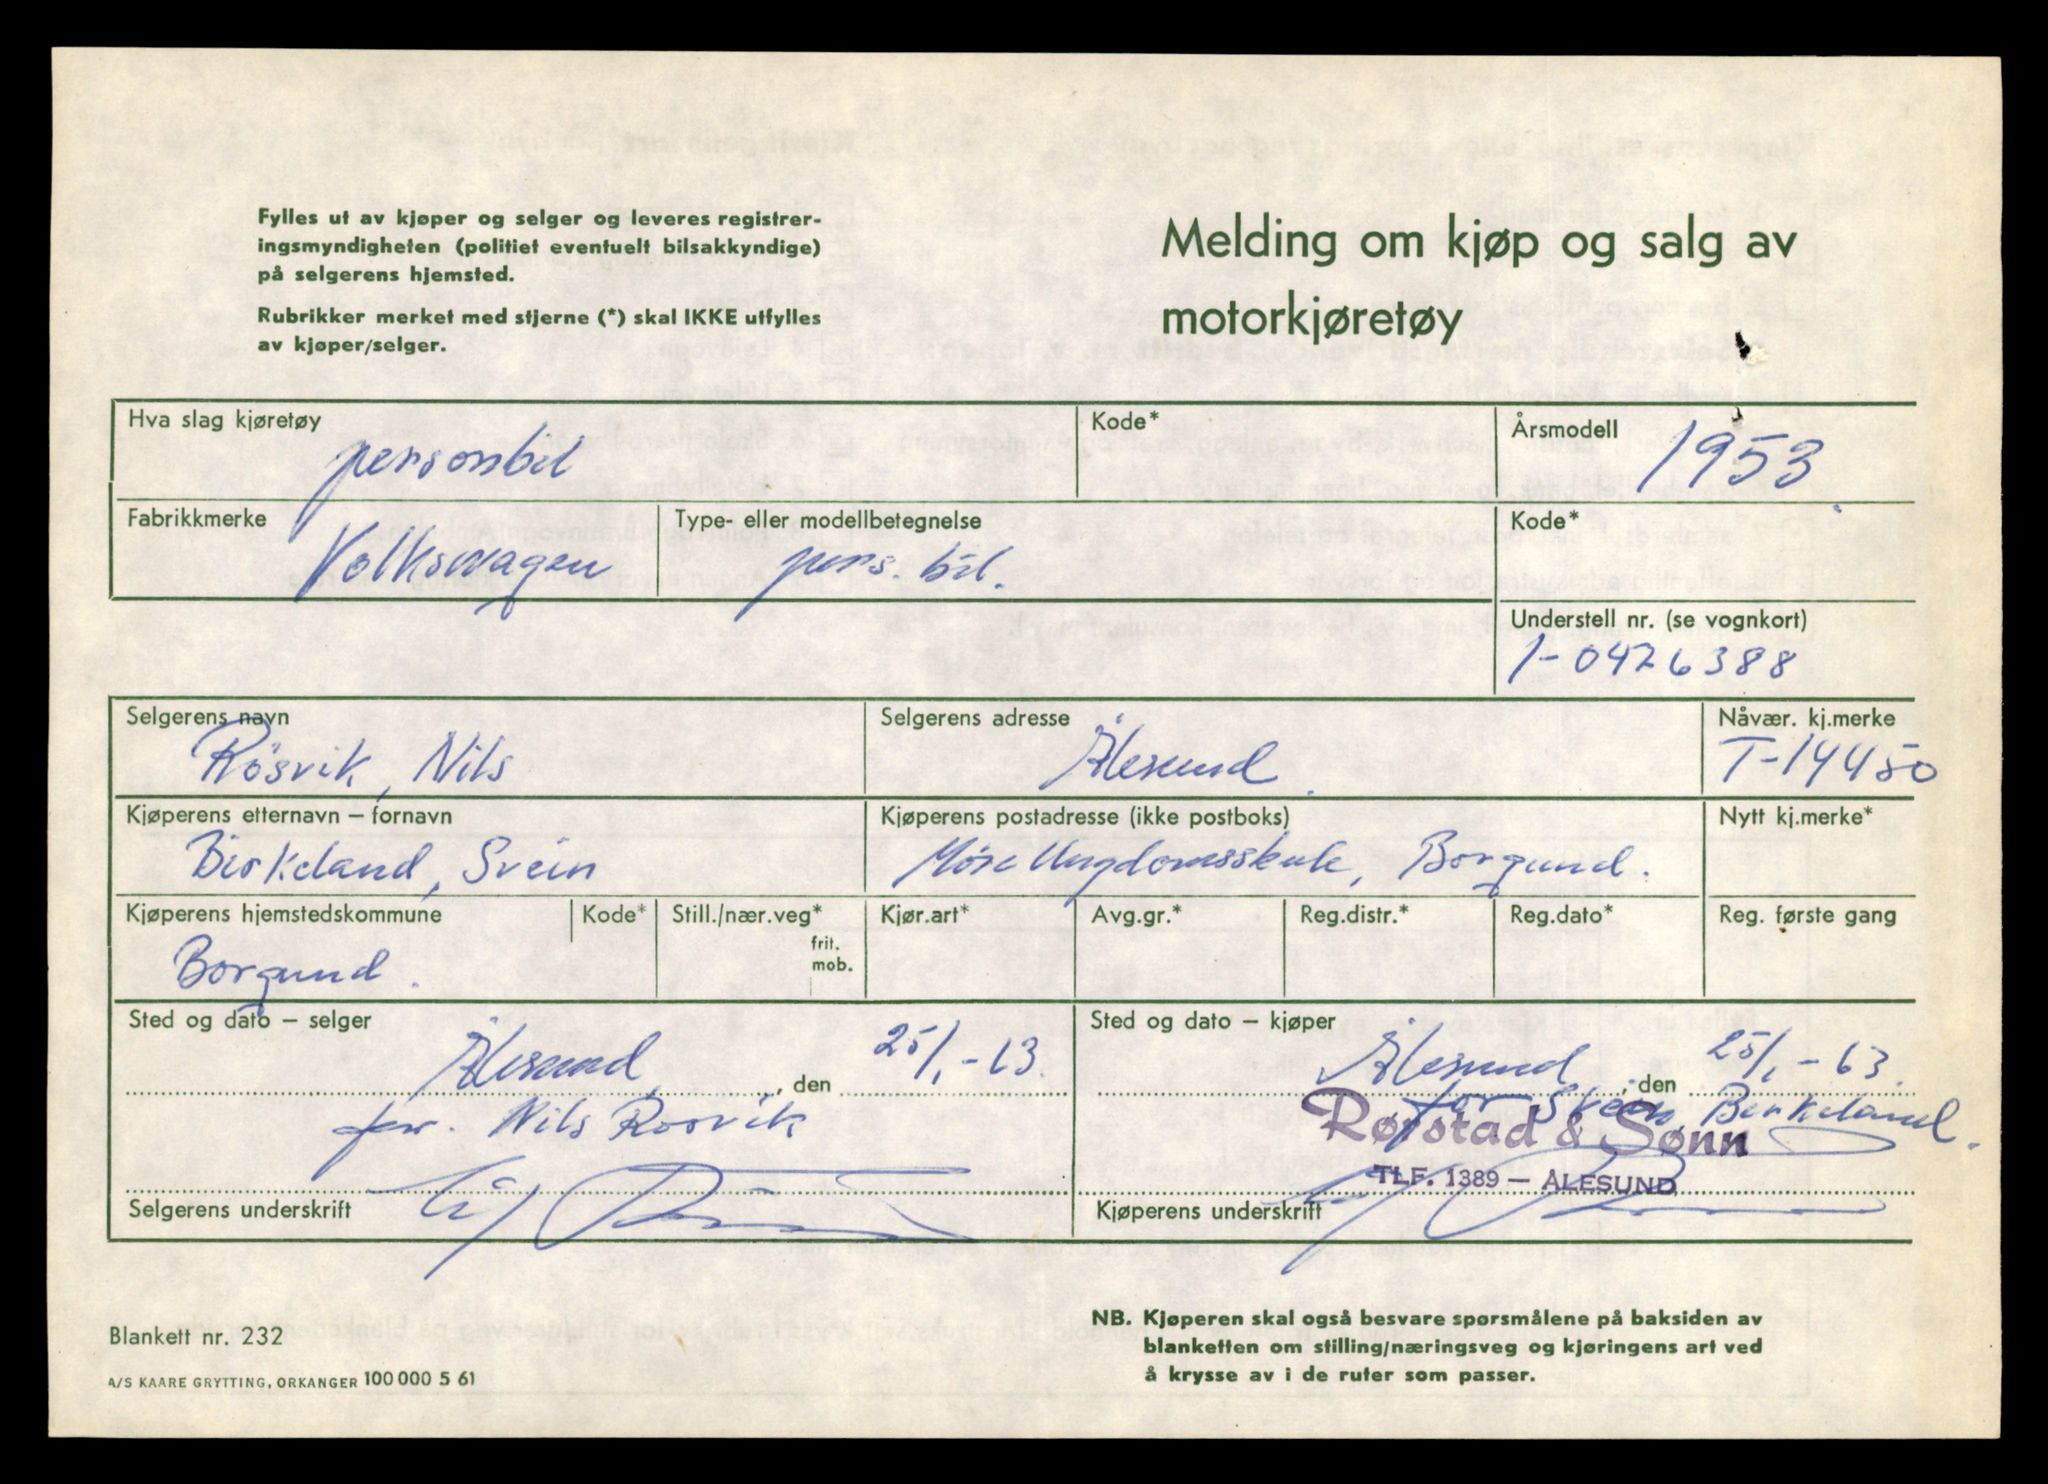 Fylles ut av kjøper og selger og leveres registrer-
ingsmyndigheten (politiet eventuelt bilsakkyndige)
på selgerens hjemsted.
Rubrikker merket med stjerne (*) skal IKKE utfylles
av kjøper/selger.
Melding om kjøp og salg av
motorkjøretøy
Hva slag kjøretøy
personbil
Kode*
Årsmodell
1953
Fabrikkmerke
Volkswagen
Type- eller modellbetegnelse
pers. bil.
Kode*
Understell nr. (se vognkort)
1-0426388
Selgerens navn
Rösvik, Nils
Selgerens adresse
Ålesund.
Nåvær. kj.merke
T-14450
Kjøperens etternavn – fornavn
Birkeland, Svein
Kjøperens postadresse (ikke postboks)
Møre Ungdomsskule, Borgund.
Nytt kj.merke*
Kjøperens hjemstedskommune
Borgund.
Kode*
Still./nær.veg*
frit.
mob.
Kjør.art*
Avg.gr.*
Reg.distr.*
Reg.dato*
Reg. første gang
Sted og dato – selger
Ålesund, den 25/1-63.
for. Nils Rosvik
Selgerens underskrift
Sted og dato – kjøper
Ålesund, den 25/1-63.
for Svein Birkeland.
Rørstad & Sønn
TLF. 1389 — ÅLESUND
Kjøperens underskrift
Blankett nr. 232
A/S KAARE GRYTTING, ORKANGER 100 000 5 61
NB. Kjøperen skal også besvare spørsmålene på baksiden av
blanketten om stilling/næringsveg og kjøringens art ved
å krysse av i de ruter som passer.